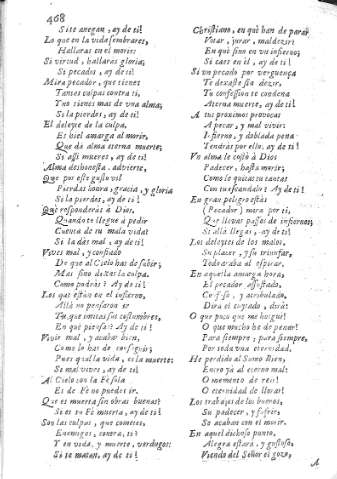 468
Si te anegan, ay de ti!
Lo que en la vida sembrares,
Hallaras en el morir:
Si virtud, hallaras gloria;
Si pecados, ay de ti!
Mira pecador, que tienes
Tantas culpas contra ti,
Y no tienes mas de una alma;
Si la pierdes, ay de ti!
El deleyte de la culpa,
Es hiel amarga al morir,
Que dà alma eterna muerte;
Si assi mueres, ay de ti!
Alma deshonesta, advierte,
Que por este gusto vil
Pierdas honra, gracia, y gloria
Si la pierdes, ay de ti!
Que responderàs à Dios,
Quando te llegue à pedir
Cuenta de tu mala vida?
Si la dàs mal, ay de ti!
Vives mal, y confiado
De que al Cielo has de subir;
Mas sino dexas la culpa,
Como podràs? Ay de ti!
Los que estàn en el infierno,
Allà no pensaron ir
Tu, que imitas sus costumbres,
En què piensas? Ay de ti!
Vivir mal, y acabar bien,
Como lo has de conseguir;
Pues qual la vida, es la muerte;
Si mal vives, ay de ti!
Al Cielo con la Fè sola
Es de Fè no puedes ir.
Que es muerta sin obras buenas?
Si es tu Fè muerta, ay de ti!
Son las culpas, que cometes,
Enemigos, contra ti?
Y en vida, y muerte, verdugos:
Si te matan, ay de ti!
Christiano, en què han de parar
Votar, jurar, maldezir?
En què sino en un infierno;
Si caes en èl, ay de ti!
Si un pecado por verguença
Te dexaste sin dezir,
Tu confession te condena
A eterna muerte, ay de ti!
A tus proximos provocas
A pecar, y mal vivir:
Infierno, y doblada pena
Tendràs por ello, ay de ti!
Un alma le costò à Dios
Padecer, hasta morir;
Como le quitas tu tantas
Con tu escandalo? Ay de ti!
En gran peligro estàs
(Pecador) mira por ti,
Que llevas passos de infierno;
Si allà llegas, ay de ti!
Los deleytes de los malos,
Su placer, y su triunfar,
Todo acaba al espirar.
En aquella amarga hora,
El pecador assustado,
Confuso, y atribulado,
Dirà el cuytado, dirà:
O que poco que me holguè!
O que mucho he de penar!
Para siempre; para siempre,
Por toda una eternidad.
He perdido al Sumo Bien,
Entro yà al eterno mal:
O momento de reìr!
O eternidad de llorar!
Los trabajos de los buenos,
Su padecer, y sufrir,
Se acaban con el morir.
En aquel dichoso punto,
Alegre estarà, y gustoso,
Viendo del Señor el gozo,
A